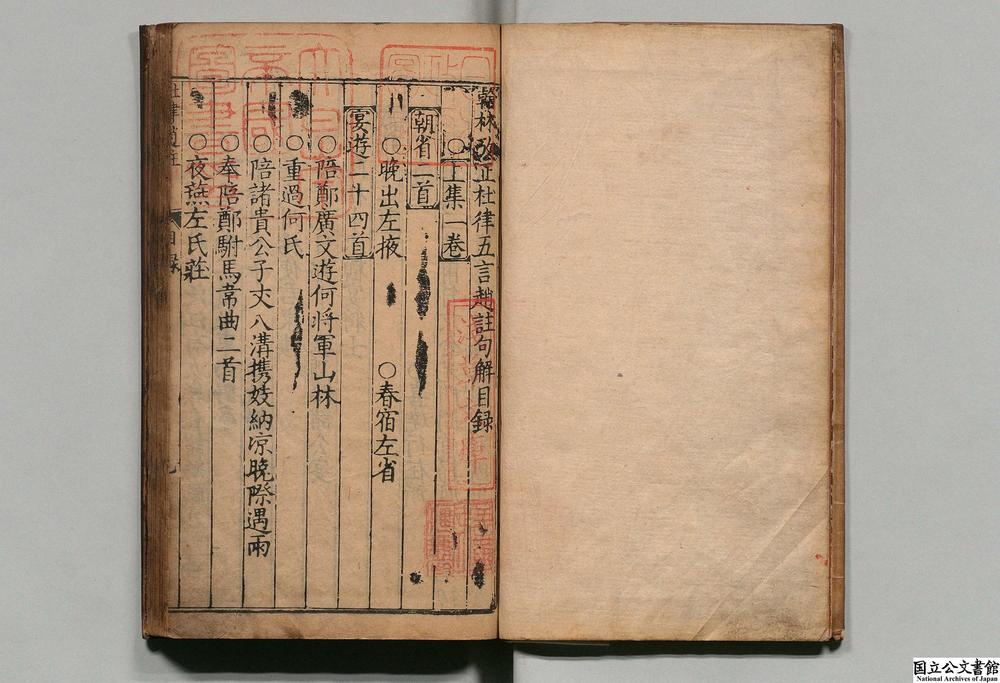 翰林攷正杜律五言趙註句解目録
○上集一卷
朝省二首
○晚出左掖 ○春宿左省
宴遊二十四首
○陪鄭廣文遊何將軍山林
○重過何氏
○陪諸貴公子丈八溝携妓納凉晚際遇雨
○奉陪鄭駙馬韋曲二首
○夜䜩左氏莊
目録
国立公文書館
National Archives of Japan